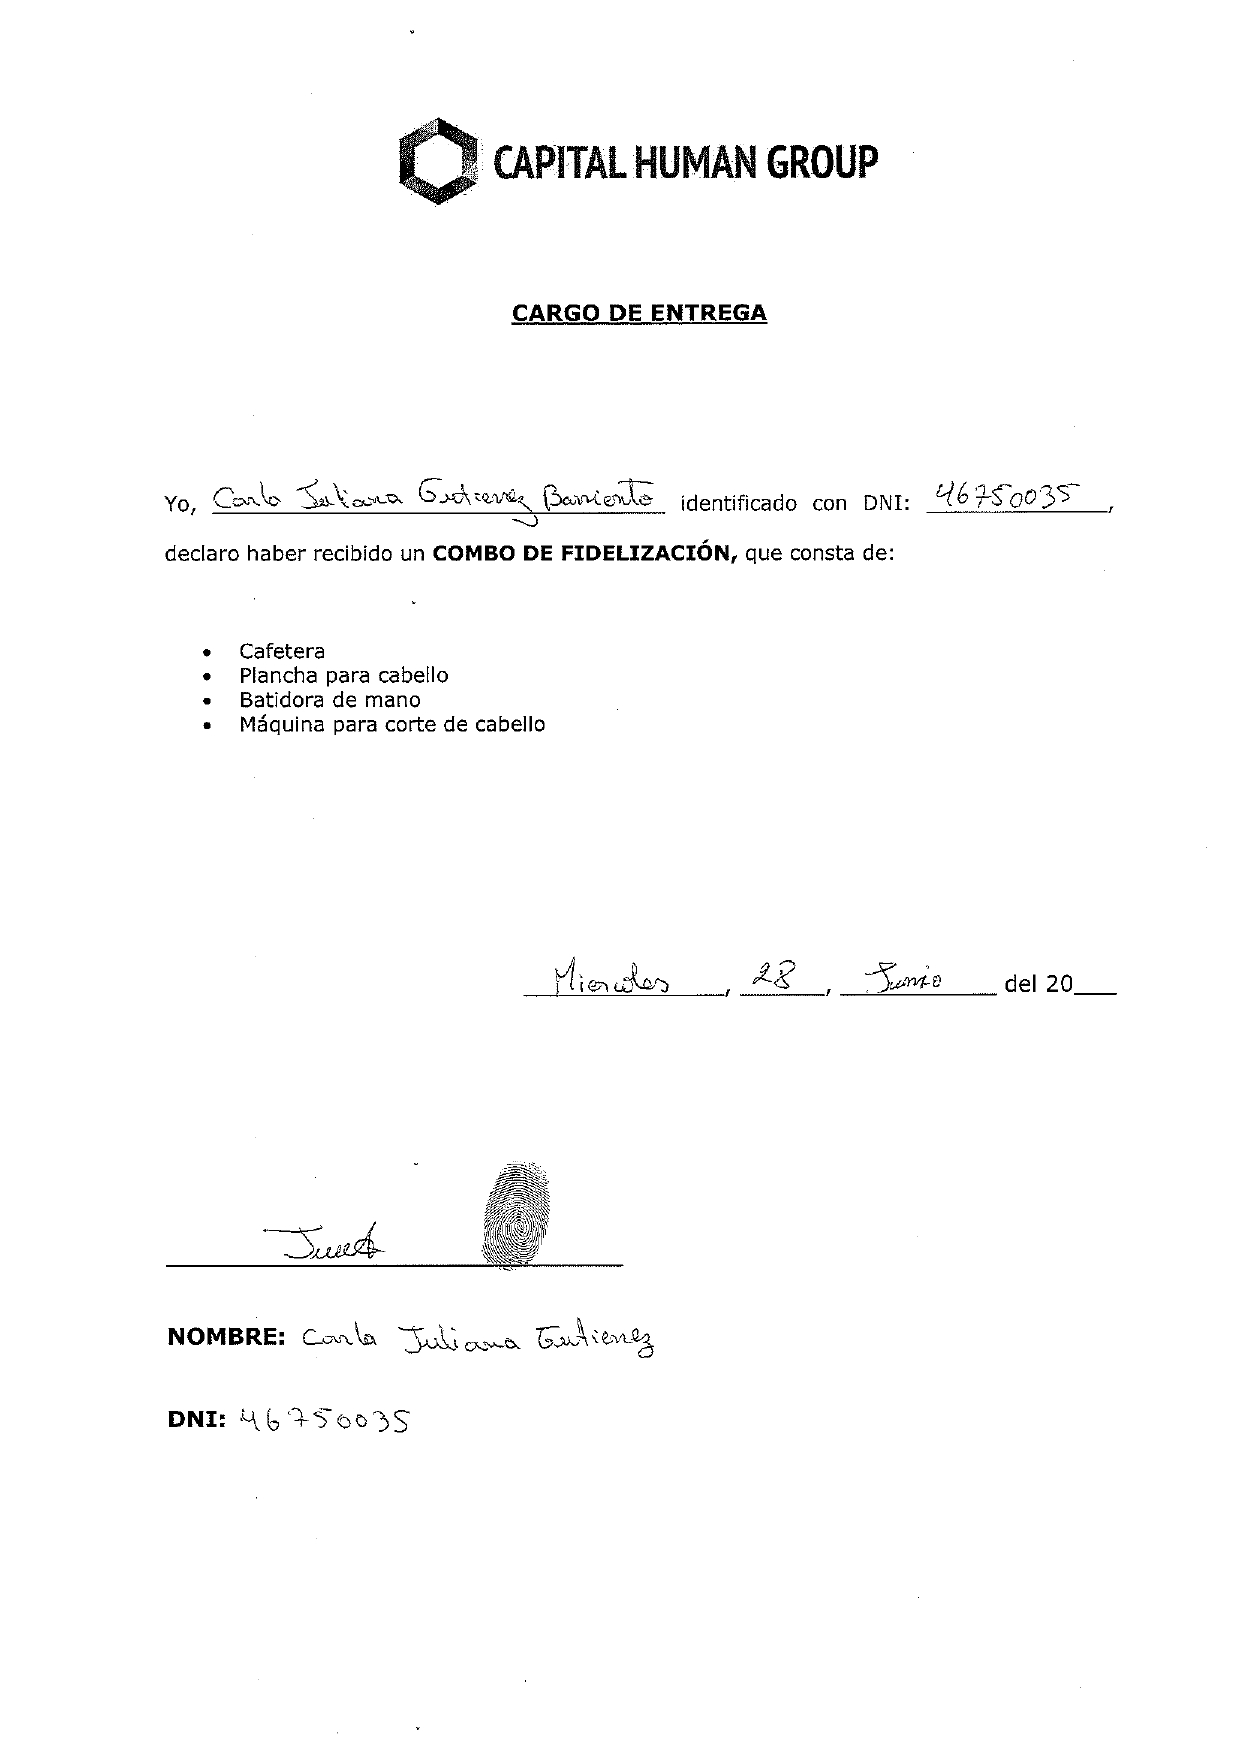 CAPITAL HUMAN GROUP
CARGO DE ENTREGA
Yo, Carla Juliana Gutierrez Barriento identificado con DNI: 46750035,
declaro haber recibido un COMBO DE FIDELIZACIÓN, que consta de:
• Cafetera
• Plancha para cabello
• Batidora de mano
• Máquina para corte de cabello
Miercoles, 28, Junio del 20___
NOMBRE: Carla Juliana Gutierrez
DNI: 46750035